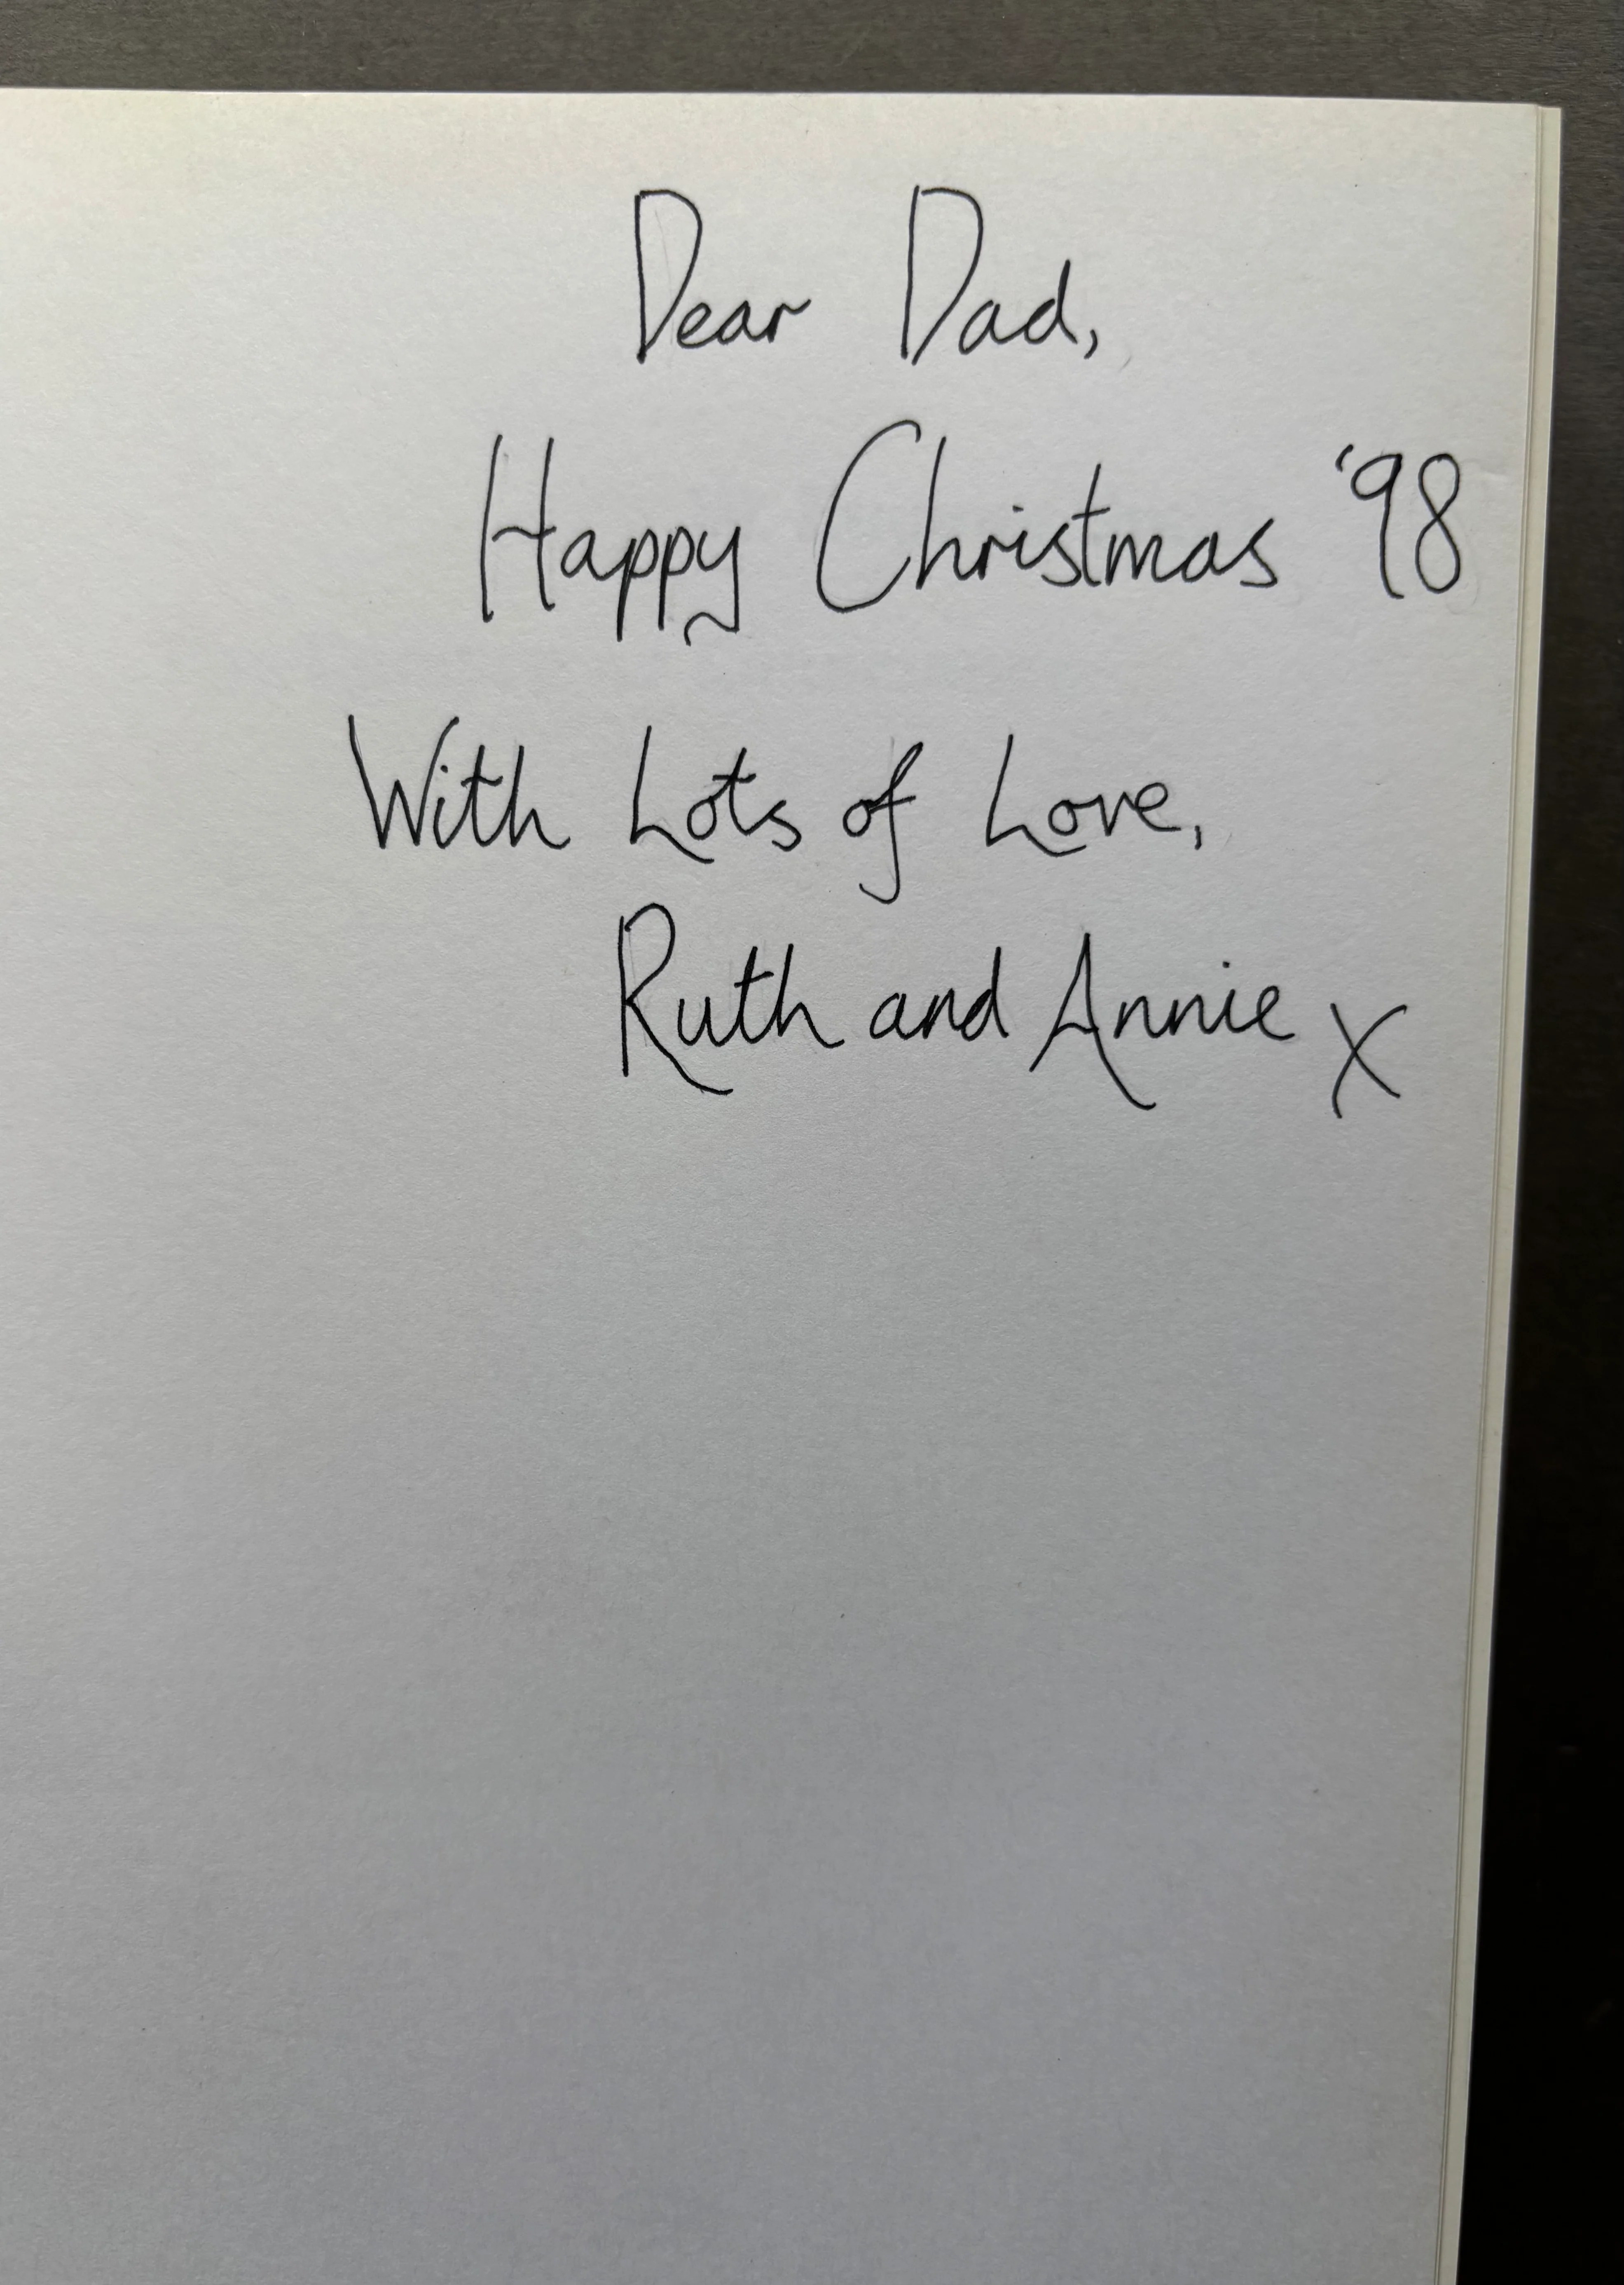 Dear Dad,
Happy Christmas '98
With Lots of Love,
Ruth and Annie X